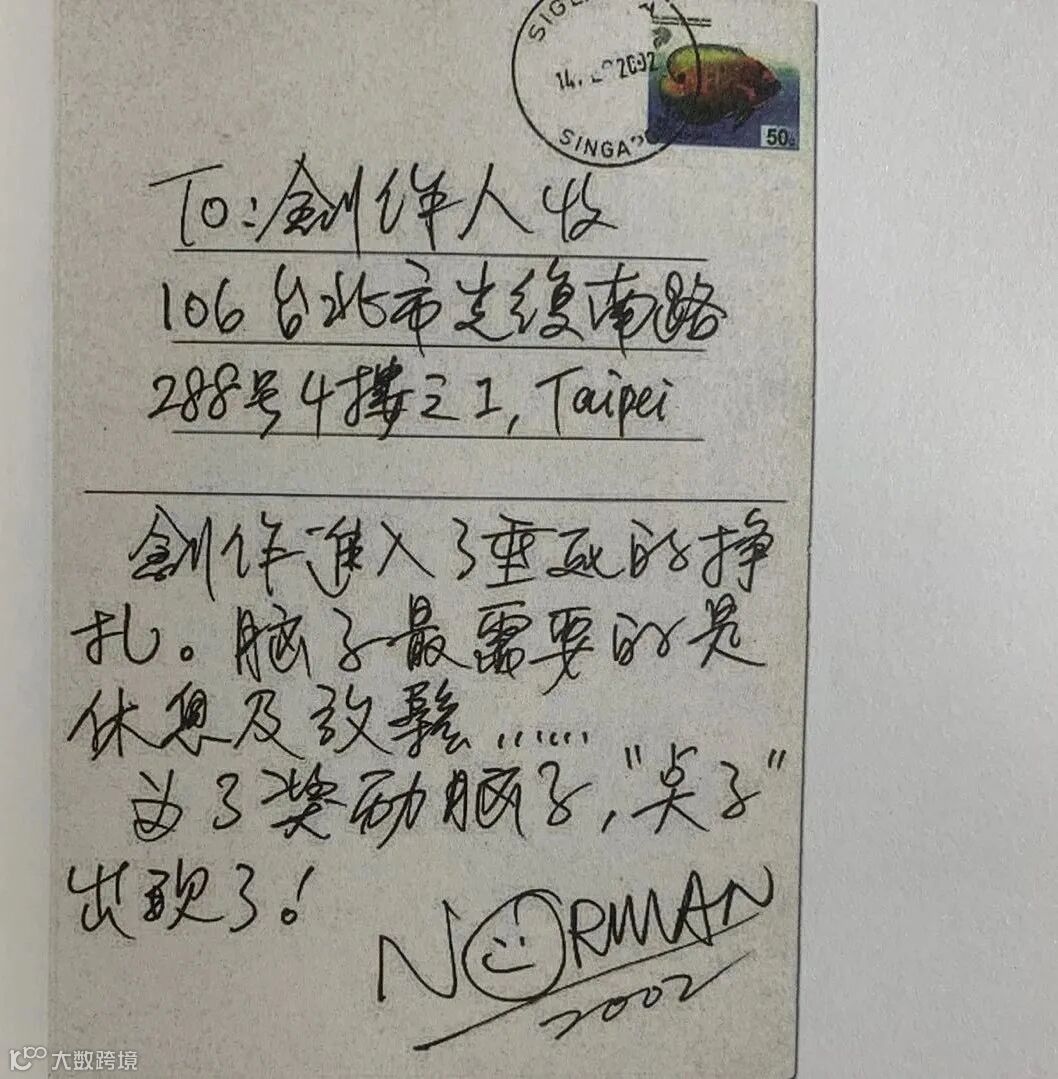 14. 2002
SINGA
50c
To:創作人收
106台北市光復南路
288号4樓之1, Taipei
創作進入了垂死的挣
扎。脑子最需要的是
休息及放鬆……
为了奖励脑子,"点子"
出现了!
NORMAN
2002
大数跨境